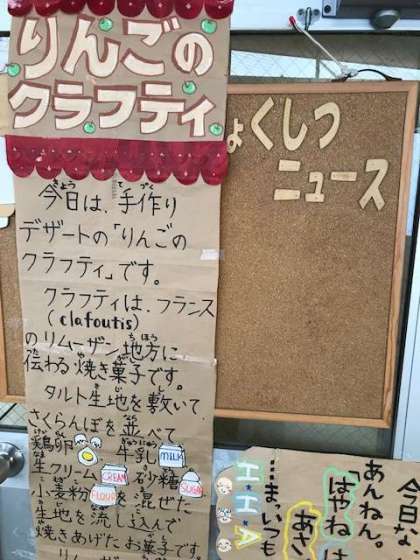 りんごの
クラフティ
今日は、手作り
デザートの「りんごの
クラフティ」です。
クラフティは、フランス
(clafoutis)
のリムーザン地方に
伝わる焼き菓子です。
タルト生地を敷いて
さくらんぼを並べて
鶏卵 牛乳 MILK
生クリーム CREAM 砂糖 SUGAR
小麦粉 FLOUR を混ぜた
生地を流し込んで
焼きあげたお菓子です。
ょくしつ
ニュース
今日な
あんねん。
「はやね は
あさ
まいつも